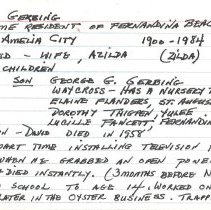 GERBING
TIME RESIDENT OF FERNANDINA BEAC
AMELIA CITY 1900-1984
ED - WIFE, AZILDA (ZILDA)
CHILDREN
SON GEORGE G. GERBING
WAYCROSS - HAS A NURSERY
ELAINE FLANDERS, ST. AUGUS
DOROTHY TAIGTEN, YULEE
LUCILLE FAWCETT FERNANDIN
ON - DAVID DIED IN 1955
PART TIME INSTALLING TELEVISION
WHEN HE GRABBED AN OPEN POWE
DIED INSTANTLY. (3 MONTHS BEFORE
SCHOOL TO AGE 14, WORKED ON
LATER IN THE OYSTER BUSINESS. TRAPP